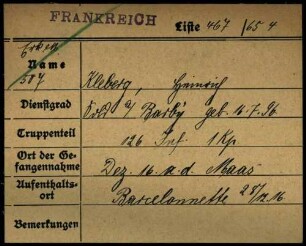 FRANKREICH
Liste 467 / 65 4
Erken
Name
587
Kleberg, Heinrich
Dienstgrad
Sold a/ Barby geb. 16.7.96
Truppenteil
126 Inf. 1 Kp.
Ort der Gefangennahme
Dez. 16. a. d. Maas
Aufenthaltsort
Barcelonnette 28/12 16
Bemerkungen